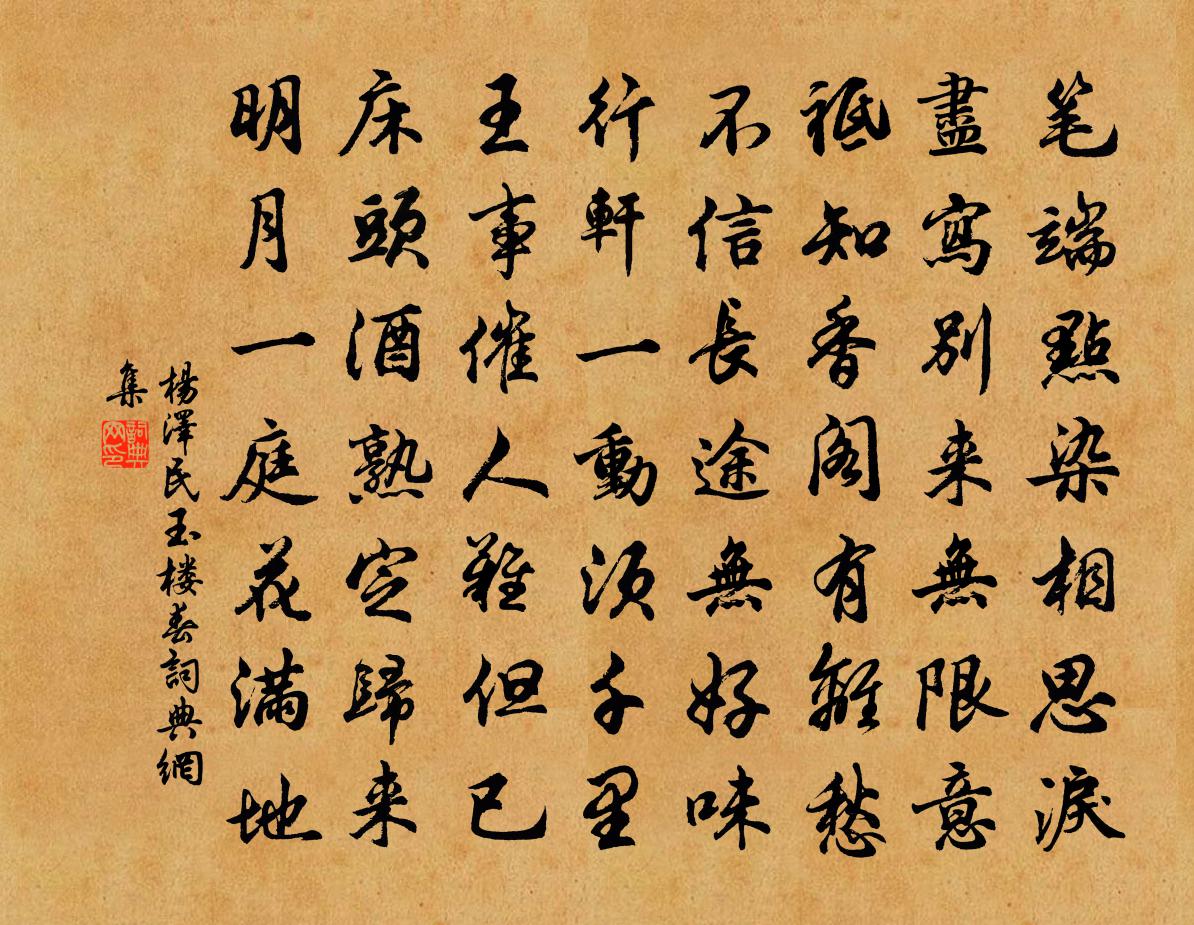 笔端點染相思淚
盡寫別来無限意
祗知香阁有離愁
不信長途無好味
行軒一動須千里
王事催人難但已
床頭酒熟定歸来
明月一庭花满地
楊澤民玉楼春詞典網
集
詞典
网印